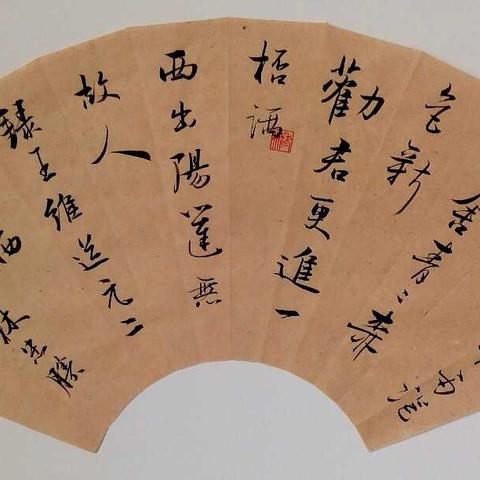 雨浥
舍青〻柳
色新
勸君更進一
桮酒
西出陽關無
故人
錄王維送元二
西林忠勝